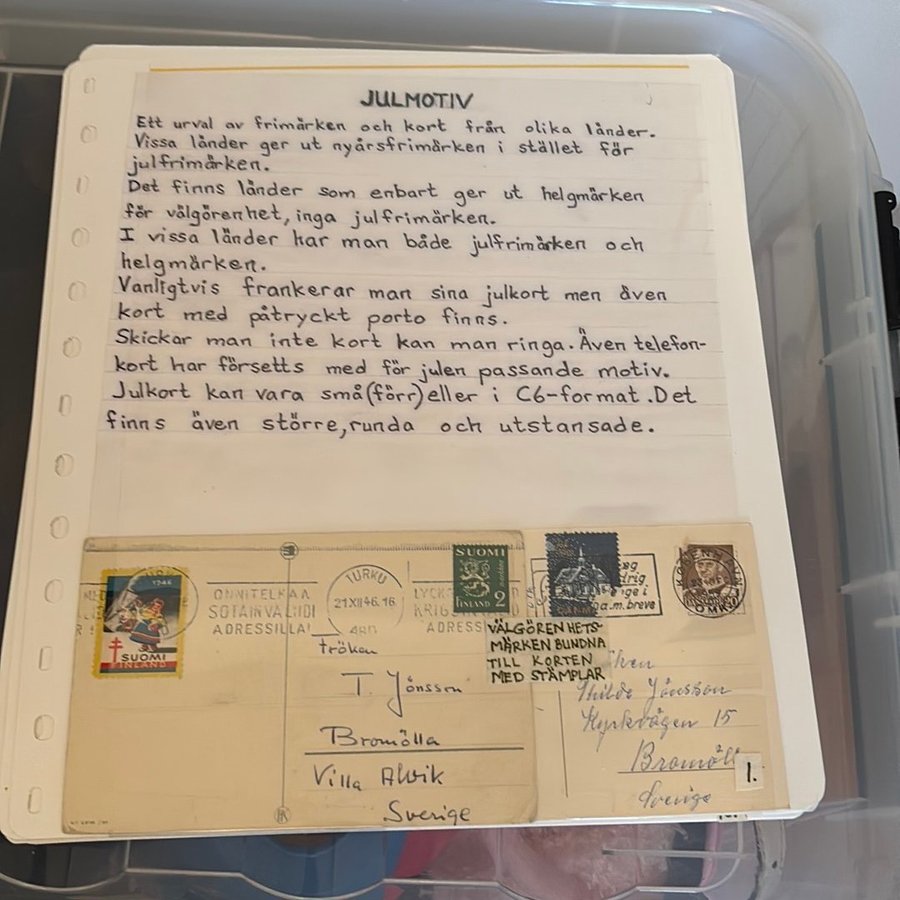 JULMOTIV
Ett urval av frimärken och kort från olika länder.
Vissa länder ger ut nyårsfrimärken i stället för
julfrimärken.
Det finns länder som enbart ger ut helgmärken
för välgörenhet, inga julfrimärken.
I vissa länder har man både julfrimärken och
helgmärken.
Vanligtvis frankerar man sina julkort men även
kort med påtryckt porto finns.
Skickar man inte kort kan man ringa. Även telefon-
kort har försetts med för julen passande motiv.
Julkort kan vara små(förr)eller i C6-format. Det
finns även större, runda och utstansade.
1946
SUOMI
FINLAND
ONNITELKAA
SOTAINVALIDI
ADRESSILLA!
TURKU
21.XII 46.16
ÅBO
SUOMI
FINLAND 2
LYCK
KRIG
ADRESS
VÄLGÖRENHETS-
MÄRKEN BUNDNA
TILL KORTEN
MED STÄMPLAR
fröken
T. Jönsson
Bromölla
Villa Alvik
Sverige
a.m. breve
KØBENHAVN
OMK
Jönsson
Kyrkvägen 15
Bromöll
Sverige
1.